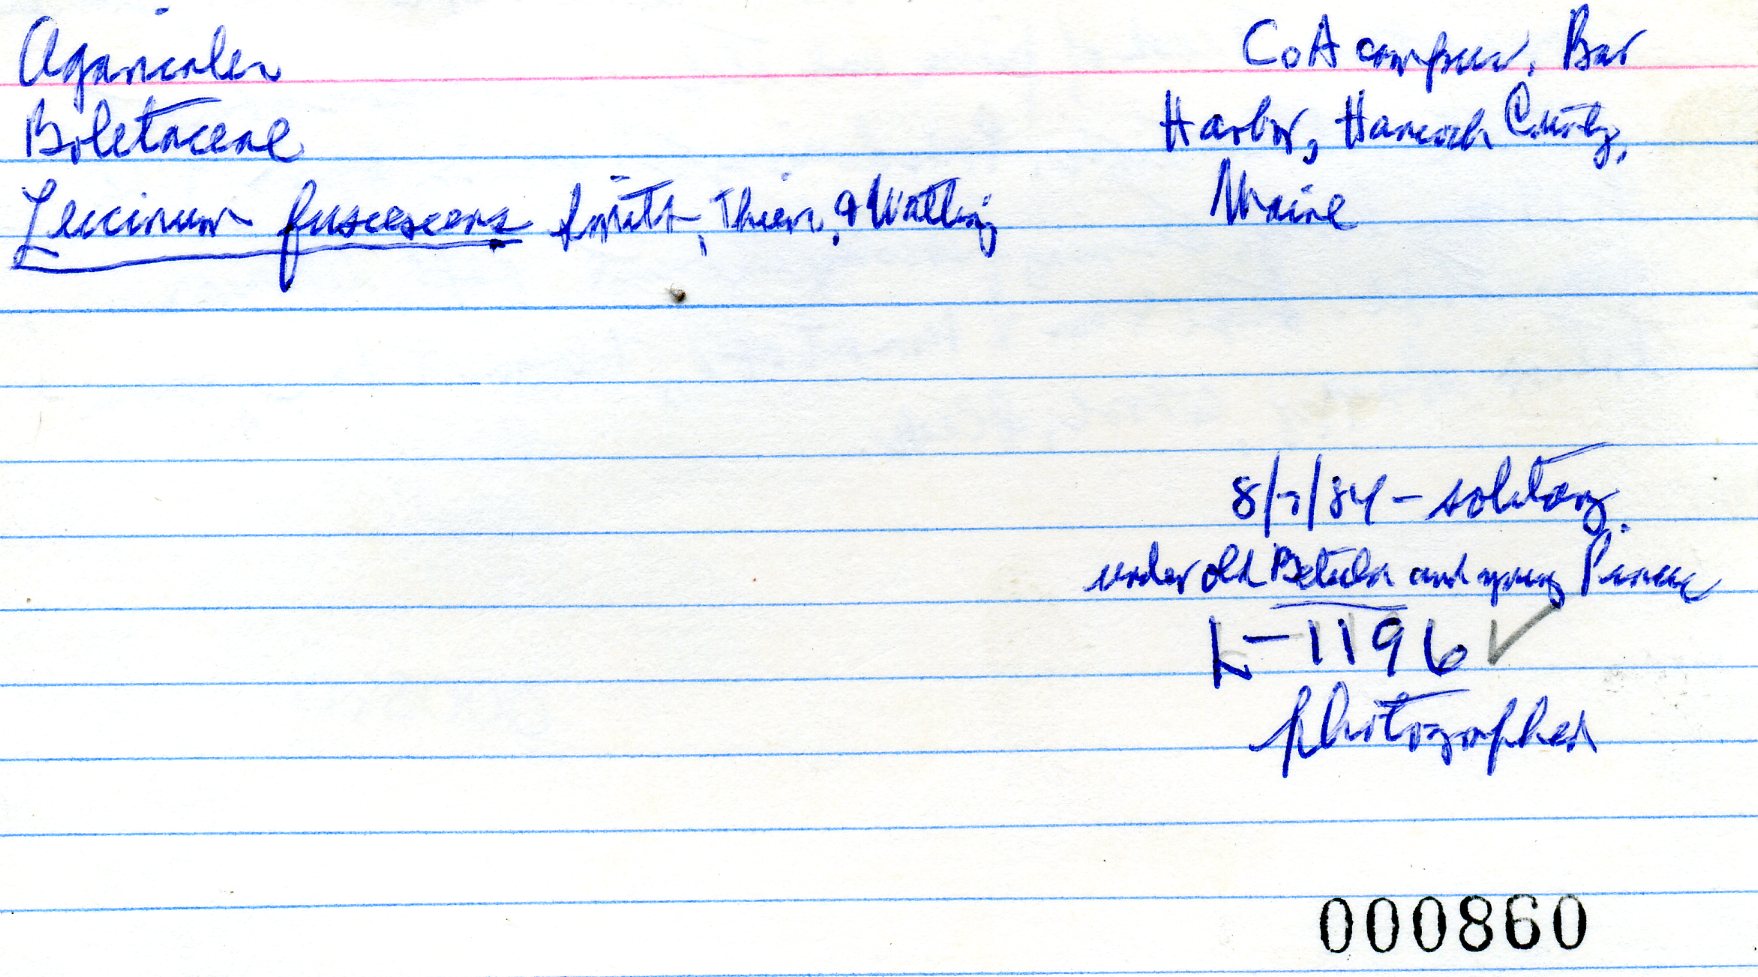 Agaricales
Boletaceae
Leccinum fuscescens Smith, Thiers, & Watling
CoA campus, Bar
Harbor, Hancock County,
Maine
8/7/84 - solitary
under old Betula and young Pinus
K-1196 ✓
photographed
000860